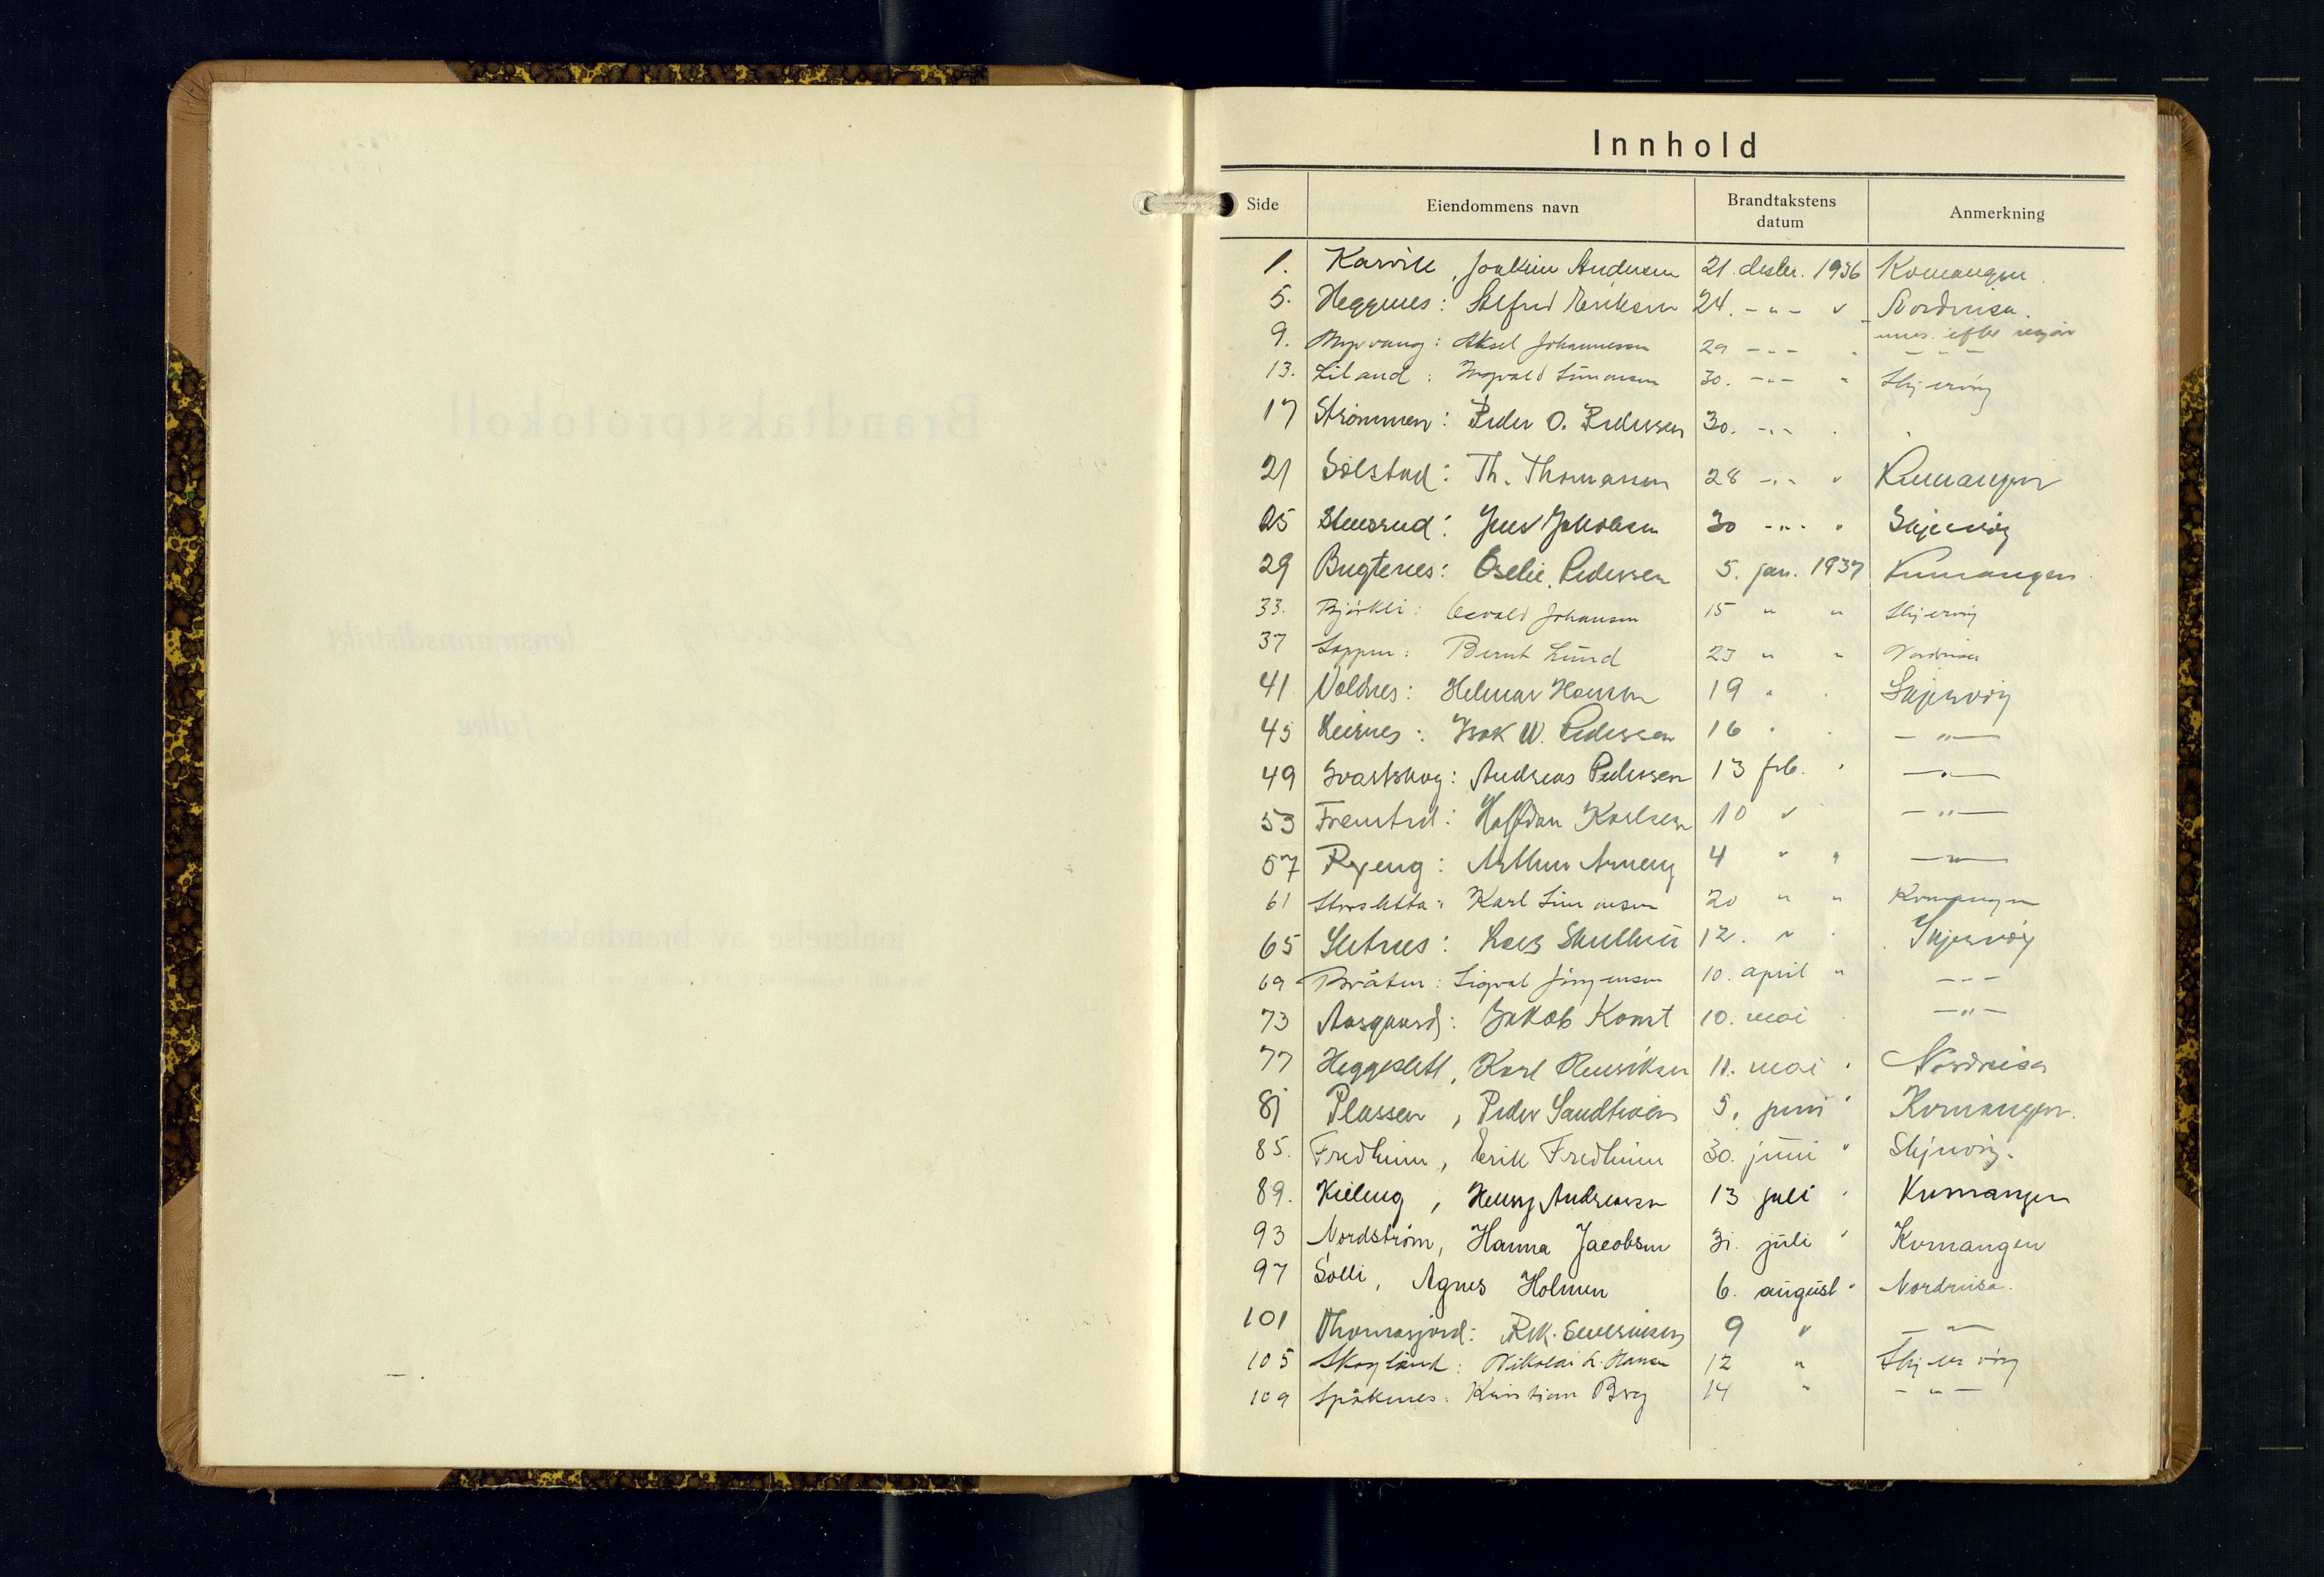 Innhold
Side Eiendommens navn Brandtakstens datum Anmerkning
1. Karvik, Joakim Andersen 21. desbr. 1936 Kvenangen.
5. Heggnes: Alfred Eriksen 24. - " - " Nordreisa.
9. Myrvang: Aksel Johannessen 29 - " - " - " -
13. Liland: Ingvald Simonsen 30. - " - " Skjervøy
17 Strømmen: Peder O. Pedersen 30. - " - " "
21 Solstad: Th. Thomassen 28 - " - " Kvenangen
25 Stensrud: Jens Jakobsen 30 - " - " Skjervøy
29 Bugtenes: Oselie Pedersen 5. jan. 1937 Kvenangen.
33. Bjørkli: Osvald Johansen 15 " " Skjervøy
37 Sappen: Bernt Lund 23 " " Nordreisa
41 Voldnes: Helmar Hansen 19 " " Skjervøy
45 Leirnes: Isak W. Pedersen 16 " " - " -
49 Svartskog: Andreas Pedersen 13 feb. " - " -
53 Fremstad: Halfdan Karlsen 10 " - " -
57 Ryeng: Arthur Arneng 4 " " - " -
61 Storsletta: Karl Simonsen 20 " " Kvenangen
65 Sletnes: Lars Skullerü 12. " " Skjervøy
69 Bråten: Sigval Jørgensen 10. april " - " -
73 Aasgaard: Jakob Konst 10. mai " - " -
77 Heggeslett, Karl Henriksen 11. mai " Nordreisa
81 Plassen, Peder Sandtrøen 5. juni " Kvenangen.
85. Fredheim, Erik Fredheim 30. juni " Skjervøy.
89. Kieleng, Henry Andreassen 13 juli " Kvenangen
93 Nordstrøm, Hanna Jacobsen 31. juli " Kvenangen
97 Solli, Agnes Holmen 6. august " Nordreisa.
101 Thomasjord: Rik. Severinsen 9 " - " -
105 Skogland: Nikolai L. Hansen 12 " Skjervøy
109 Spåkenes: Kristian Berg 14 " - " -